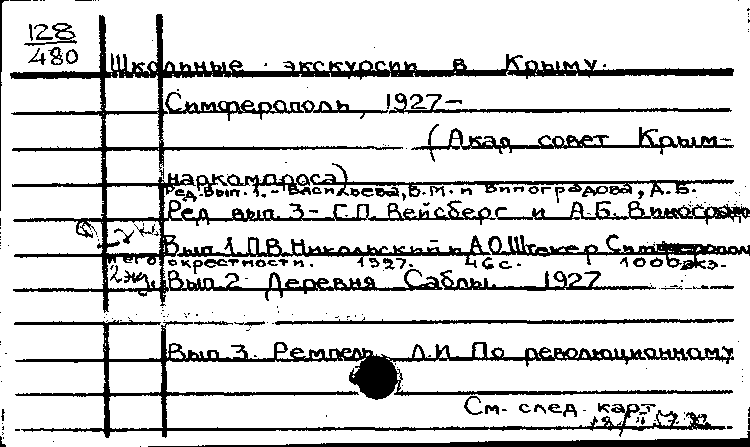 128
480
Школьные экскурсии в Крыму.
Симферополь, 1927-
(Акад совет Крым-
наркомпроса)
Ред. вып. 1.- Васильева, В.М. и Виноградова, А.Б.
Ред вып 3- Г.П. Вейсберг и А.Б. Виноградо
Вып 1. П.В. Никольский и А.О. Штекер Симферополь
и его окрестности. 1927. 46 с. 1000 экз.
2 экз. Вып 2 Деревня Саблы. 1927
Вып 3. Ремпель Л.И. По революционному
См. след. карт.